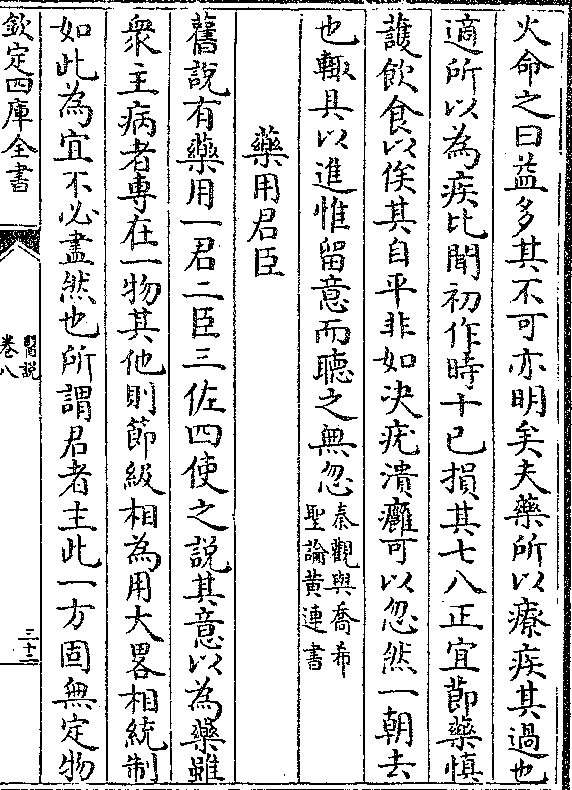 火命之曰益多其不可亦明矣夫藥所以療疾其過也
適所以為疾比聞初作時十已損其七八正宜節藥慎
護飲食以俟其自平非如决疣潰癰可以忽然一朝去
也輙具以進惟留意而聽之無忽秦觀與喬希
聖論黄連書
藥用君臣
舊說有藥用一君二臣三佐四使之說其意以為藥雖
衆主病者專在一物其他則節級相為用大畧相統制
如此為宜不必盡然也所謂君者主此一方固無定物
欽定四庫全書
醫說
卷八
三十二